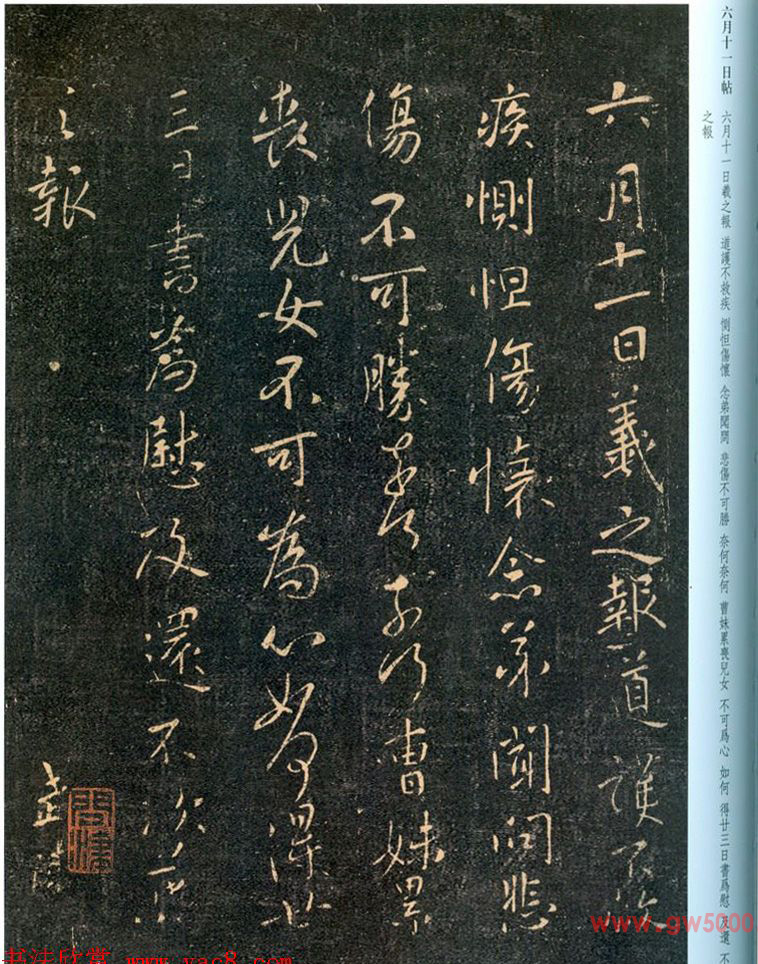 六月十一日羲之報道護不救
疾惻怛傷懷念弟聞問悲
傷不可勝奈何奈何曹妹累
喪兒女不可為心如何得廿
三日書為慰及還不次羲
之報
六月十一日帖 六月十一日羲之報 道護不救疾 惻怛傷懷 念弟聞問 悲傷不可勝 奈何奈何 曹妹累喪兒女 不可爲心 如何 得廿三日書爲慰 及還 不
之報
www.gw5000
书法欣赏 www.yac8.com